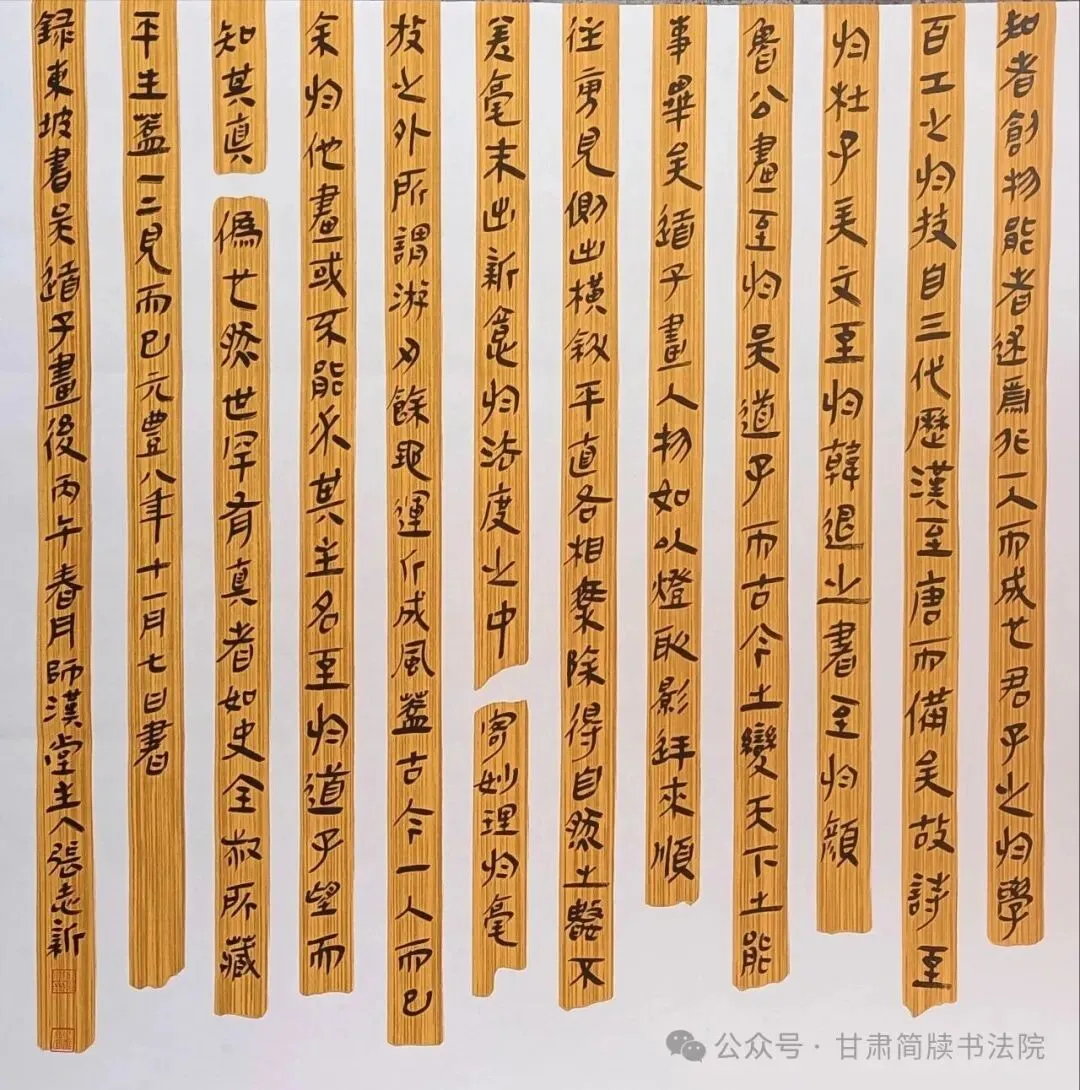 知者創物能者述焉非一人而成也君子之於學
百工之於技自三代歷漢至唐而備矣故詩至
於杜子美文至於韓退之書至於顏
魯公畫至於吳道子而古今之變天下之能
事畢矣道子畫人物如以燈取影逆來順
往旁見側出橫斜平直各相乘除得自然之數不
差毫末出新意於法度之中寄妙理於毫
放之外所謂游刃餘地運斤成風蓋古今一人而已
余於他畫或不能必其主名至於道子望而
知其真偽也然世罕有真者如史全叔所藏
平生蓋一二見而已元豐八年十一月七日書
録東坡書吳道子畫後丙午春月師漢堂主人張志新
公众号·甘肃简牍书法院